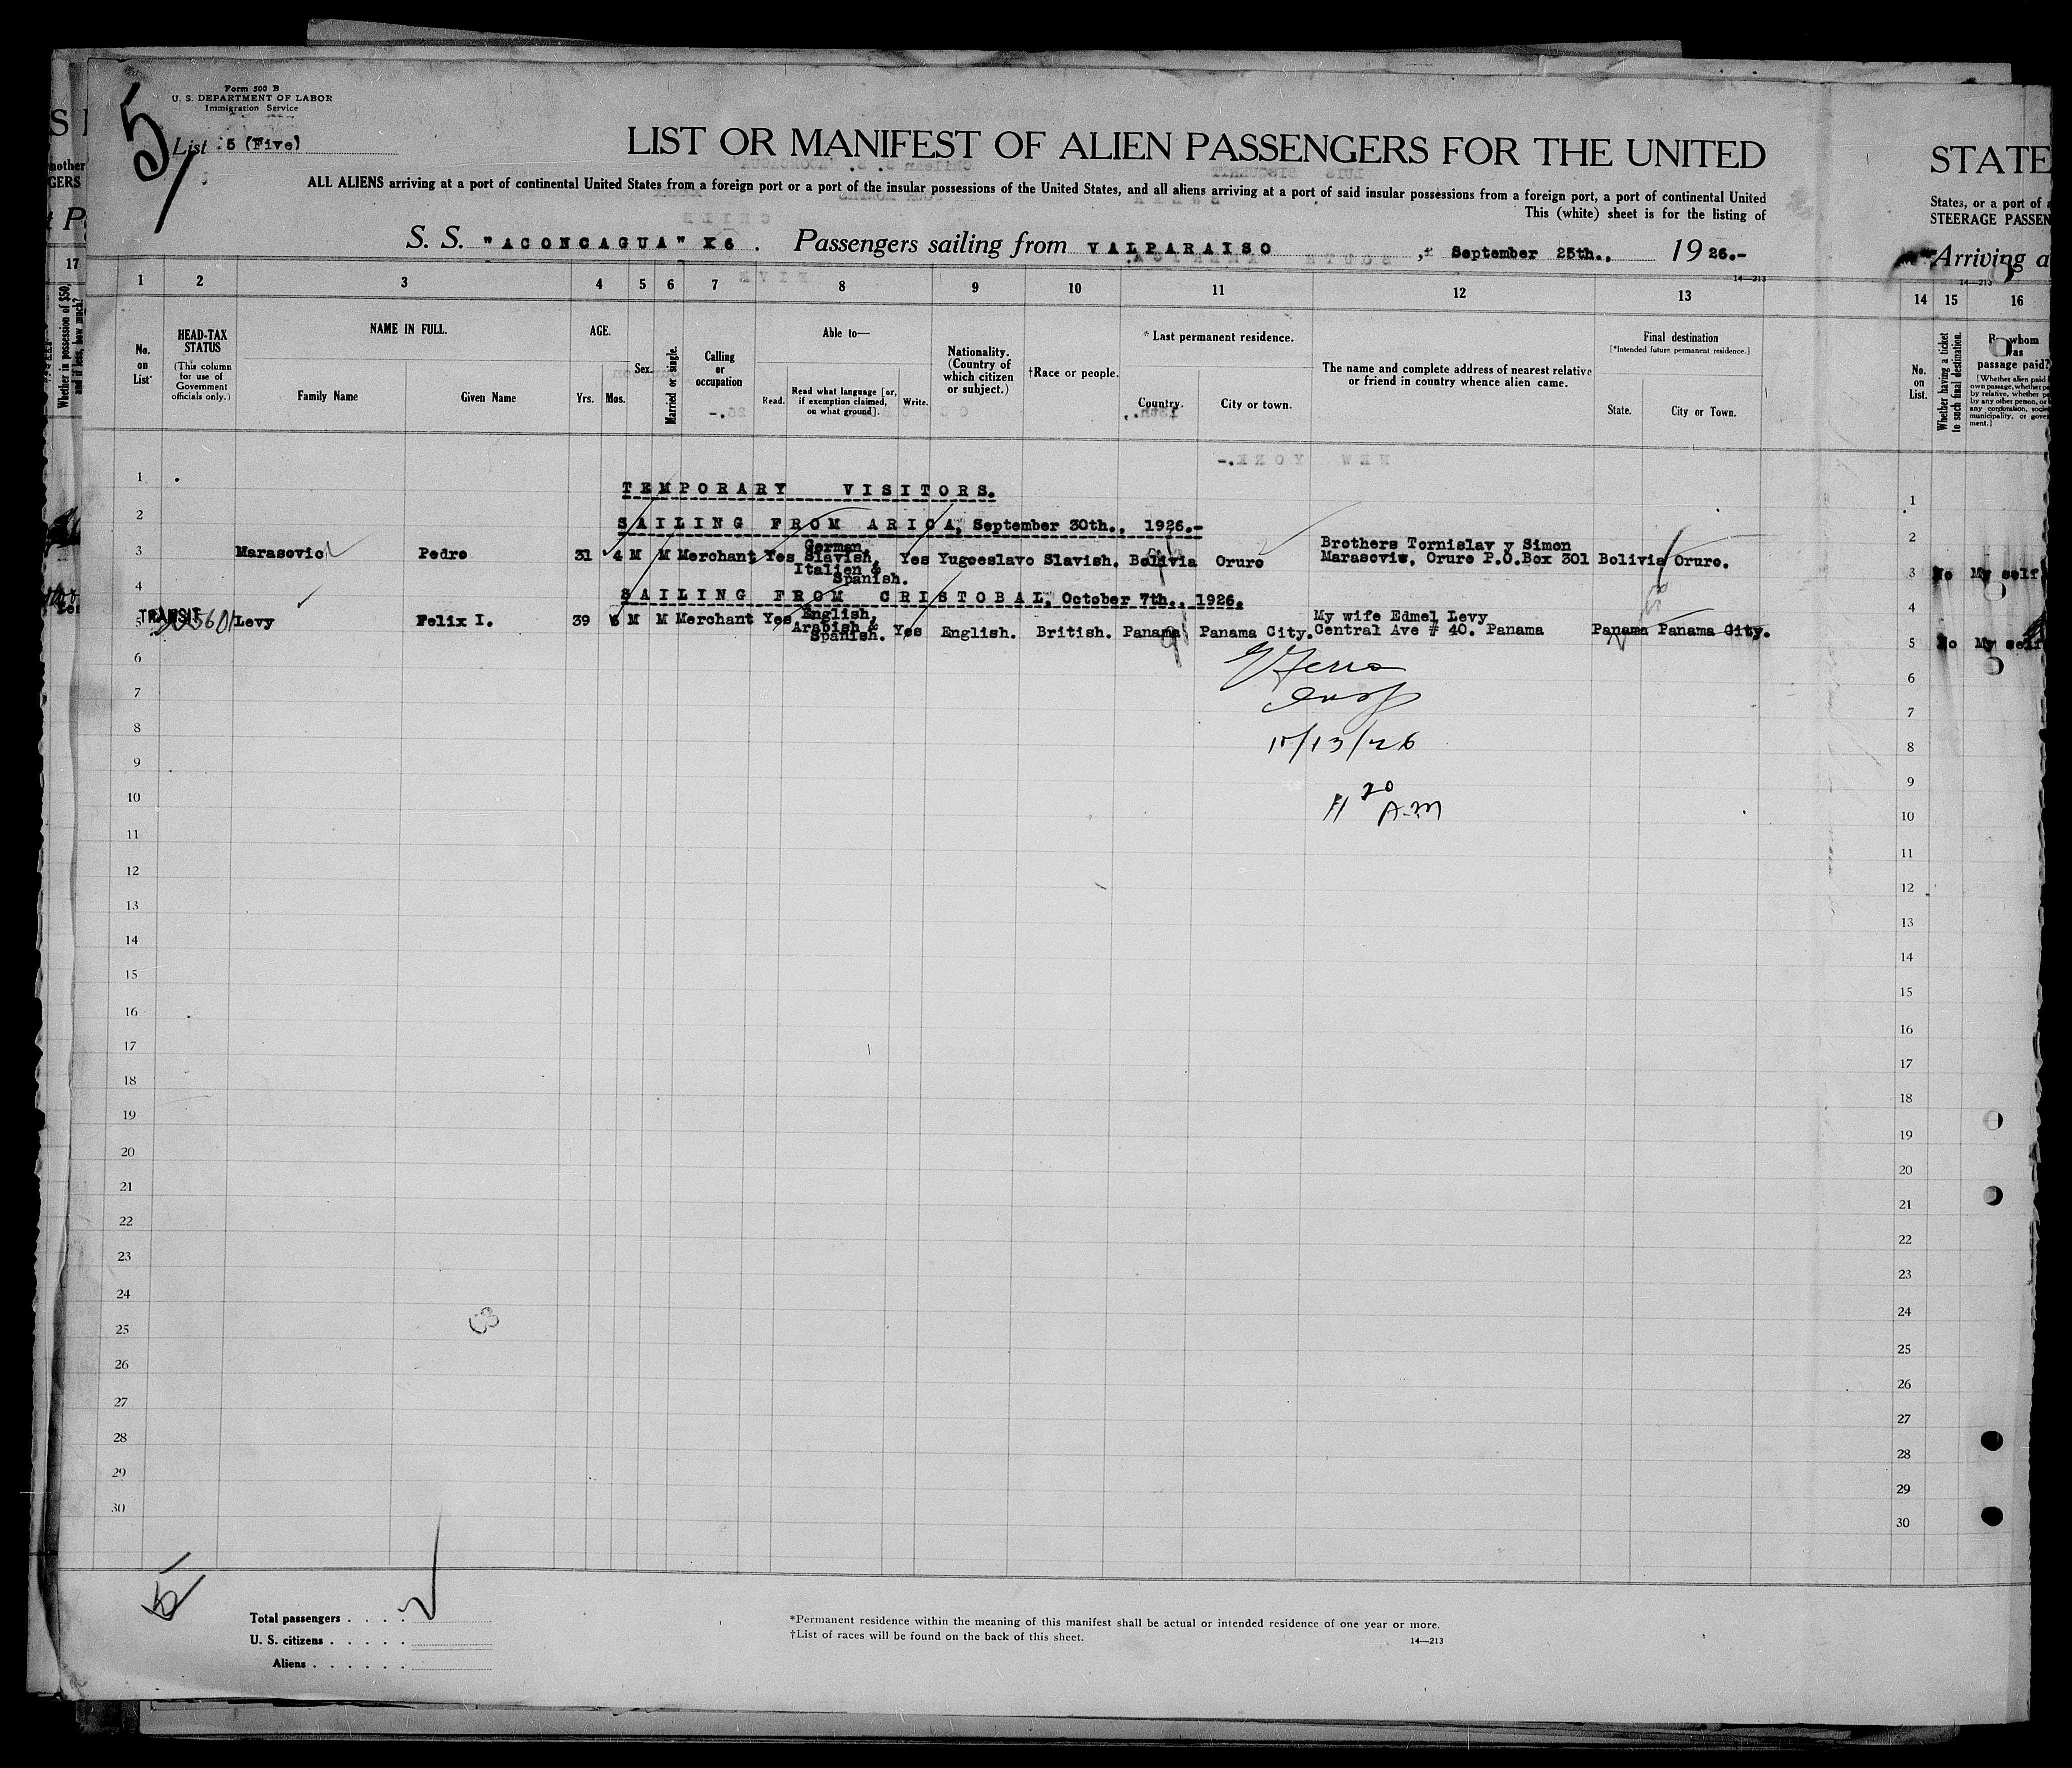 Form 500 B
U. S. DEPARTMENT OF LABOR
Immigration Service
5
List 5 (Five)
LIST OR MANIFEST OF ALIEN PASSENGERS FOR THE UNITED
STATE
ALL ALIENS arriving at a port of continental United States from a foreign port or a port of the insular possessions of the United States, and all aliens arriving at a port of said insular possessions from a foreign port, a port of continental United
States, or a port of
This (white) sheet is for the listing of
STEERAGE PASSEN
S. S. "ACONCAGUA" K6. Passengers sailing from VALPARAISO, September 25th., 1926.-
Arriving a
14—213
14—213
17
1 2 3 4 5 6 7 8 9 10 11 12 13 14 15 16
Whether in possession of $50, and if less, how much?
No. on List
HEAD-TAX STATUS
(This column for use of Government officials only.)
NAME IN FULL.
Family Name
Given Name
AGE.
Yrs.
Mos.
Sex.
Married or single.
Calling or occupation
Able to—
Read.
Read what language [or, if exemption claimed, on what ground].
Write.
Nationality. (Country of which citizen or subject.)
†Race or people.
* Last permanent residence.
Country.
City or town.
The name and complete address of nearest relative or friend in country whence alien came.
Final destination
[*Intended future permanent residence.]
State.
City or Town.
No. on List.
Whether having a ticket to such final destination.
By whom was passage paid?
1
TEMPORARY VISITORS.
2
SAILING FROM ARICA, September 30th., 1926.-
3 Marasovic Pedro 31 4 M M Merchant Yes German, Slavish, Italien & Spanish. Yes Yugoeslavo Slavish. Bolivia Oruro Brothers Tornislav y Simon Marasovis, Oruro P.O.Box 301 Bolivia Oruro. No My self
4
SAILING FROM CRISTOBAL, October 7th., 1926.
TRANSIT
5 Levy Felix I. 39 6 M M Merchant Yes English, Arabish & Spanish. Yes English. British. Panama Panama City. My wife Edmel Levy Central Ave # 40. Panama Panama Panama City. No My self
6
7
8
10/13/26
9
10
11 20 A.M
11
12
13
14
15
16
17
18
19
20
21
22
23
24
25
26
27
28
29
30
Total passengers . . . .
U. S. citizens . . . . .
Aliens . . . . . .
*Permanent residence within the meaning of this manifest shall be actual or intended residence of one year or more.
†List of races will be found on the back of this sheet.
14—213